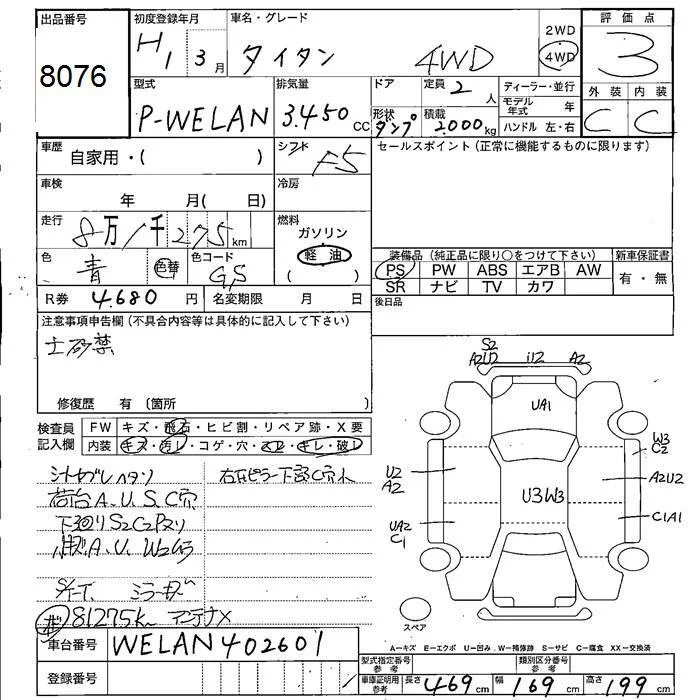 出品番号
8076
初度登録年月
H1 3月
車名・グレード
タイタン 4WD
2WD
4WD
評価点
3
外装 内装
C C
型式
P-WELAN
排気量
3.450cc
ドア
定員 2人
形状 ダンプ
積載 2000kg
ディーラー・並行
モデル年式 年
ハンドル 左・右
車歴
自家用・( )
シフト
F5
セールスポイント(正常に機能するものに限ります)
車検
年 月(日)
冷房
走行
8万1千275km
燃料
ガソリン
軽油
( )
色
青
色替
色コード
GS
装備品(純正品に限り○をつけて下さい)
PS PW ABS エアB AW
SR ナビ TV カワ
新車保証書
有・無
R券 4.680円
名変期限 月 日
後日品
注意事項申告欄(不具合内容等は具体的に記入して下さい)
土砂禁
修復歴 有(箇所
検査員記入欄
FW キズ・飛石・ヒビ割・リペア跡・X要
内装 キズ・汚レ・コゲ・穴・スレ・キレ・破レ
荷台A.U.S.C穴
右左ピラー下部C穴大
下廻りS2C2Pヌリ
A.U.W2有
81275k アンテナX
S2
A2U2 U2 A2
UA1
W3
C2
U2
A2
U3W3
A2U2
UA2
C1
C1A1
スペア
A-キズ E-エクボ U-凹み W-補修跡 S-サビ C-腐食 XX-交換済
車台番号 WELAN402601
型式指定番号 参考
類別区分番号 参考
登録番号
車庫証明用 参考
長さ 469cm 幅 169cm 高さ 199cm